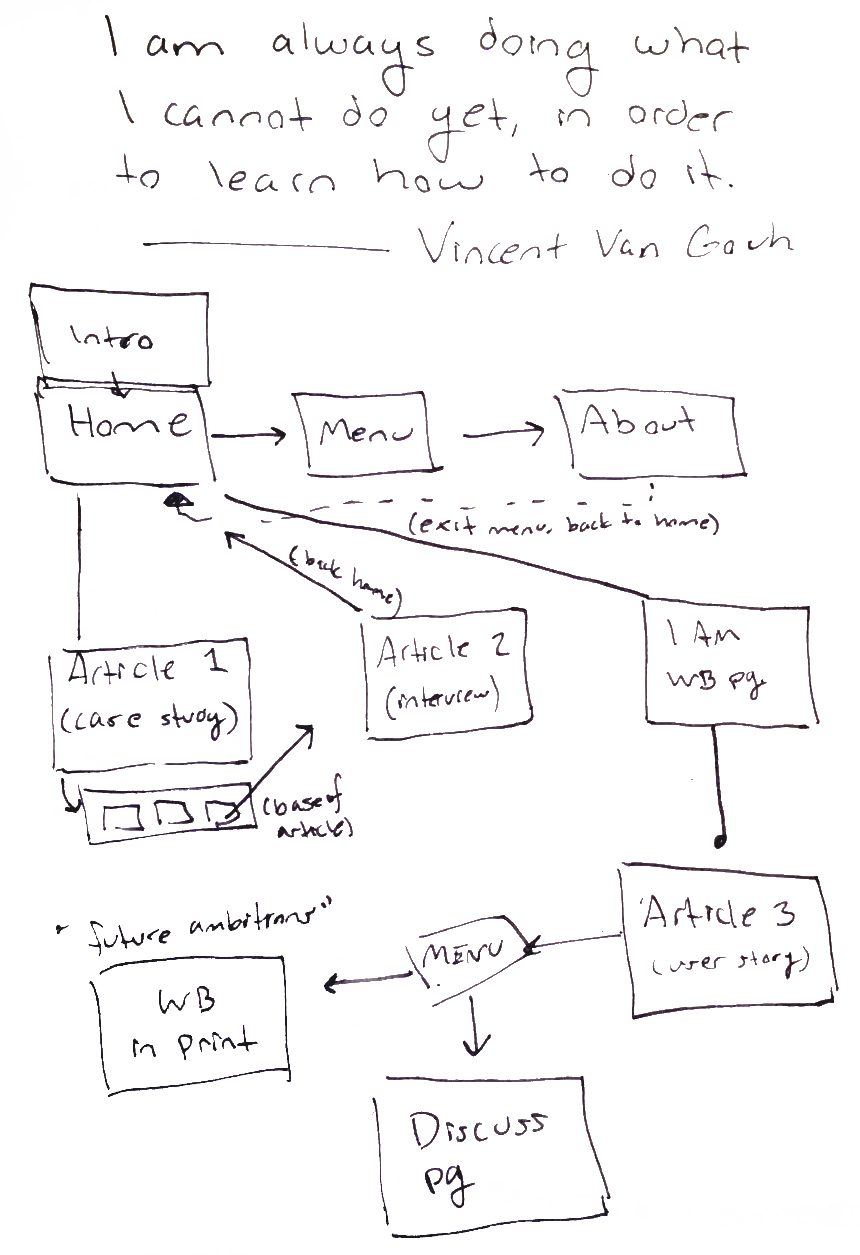 I am always doing what
I cannot do yet, in order
to learn how to do it.
Vincent Van Gouh
Intro
Home
Menu
About
(exit menu, back to home)
(back home)
Article 1
(case study)
Article 2
(interview)
I AM
WB pg.
(base of
article)
Article 3
(user story)
MENU
"future ambitions"
WB
in print
Discuss
pg